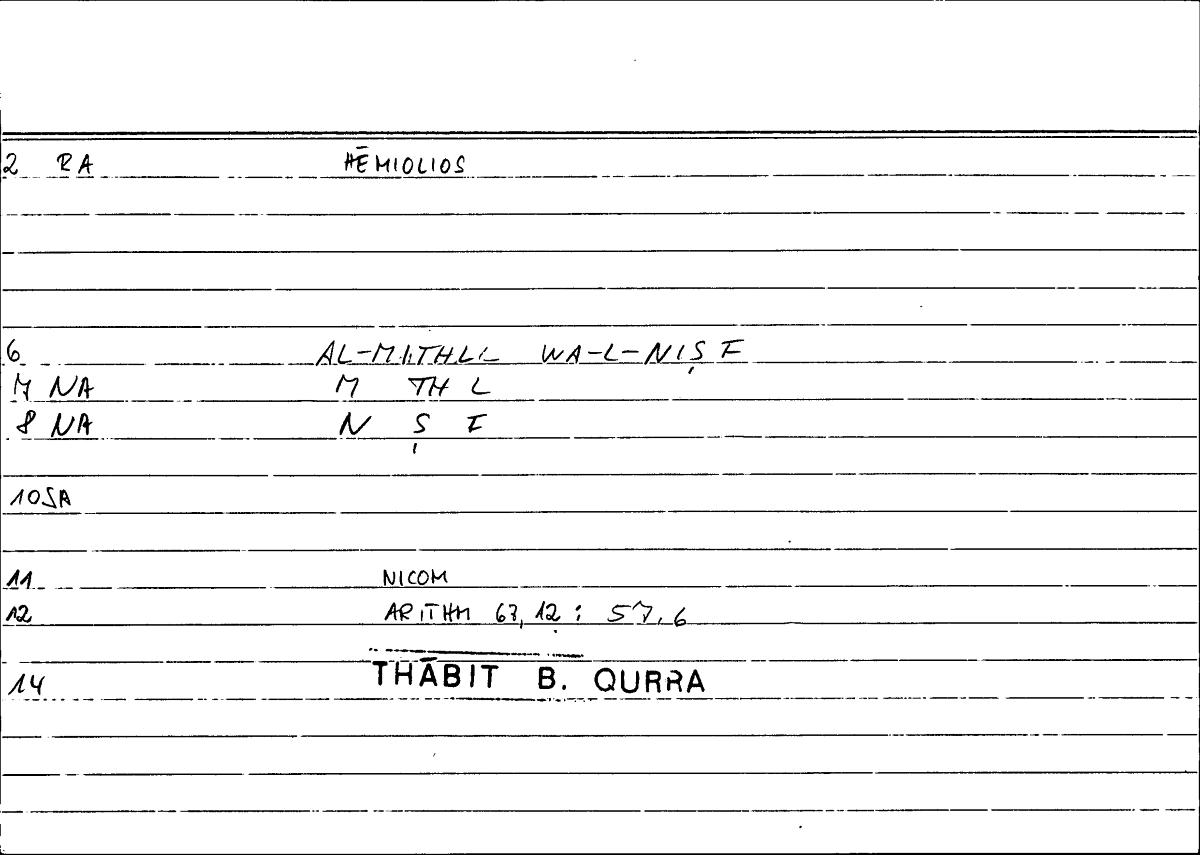 2 RA HĒMIOLIOS
6 AL-MITHLU WA-L-NIṢF
7 NA M TH L
8 NA N Ṣ F
10 SA
11 NICOM
12 ARITHM 67,12 : 57,6
14 THĀBIT B. QURRA